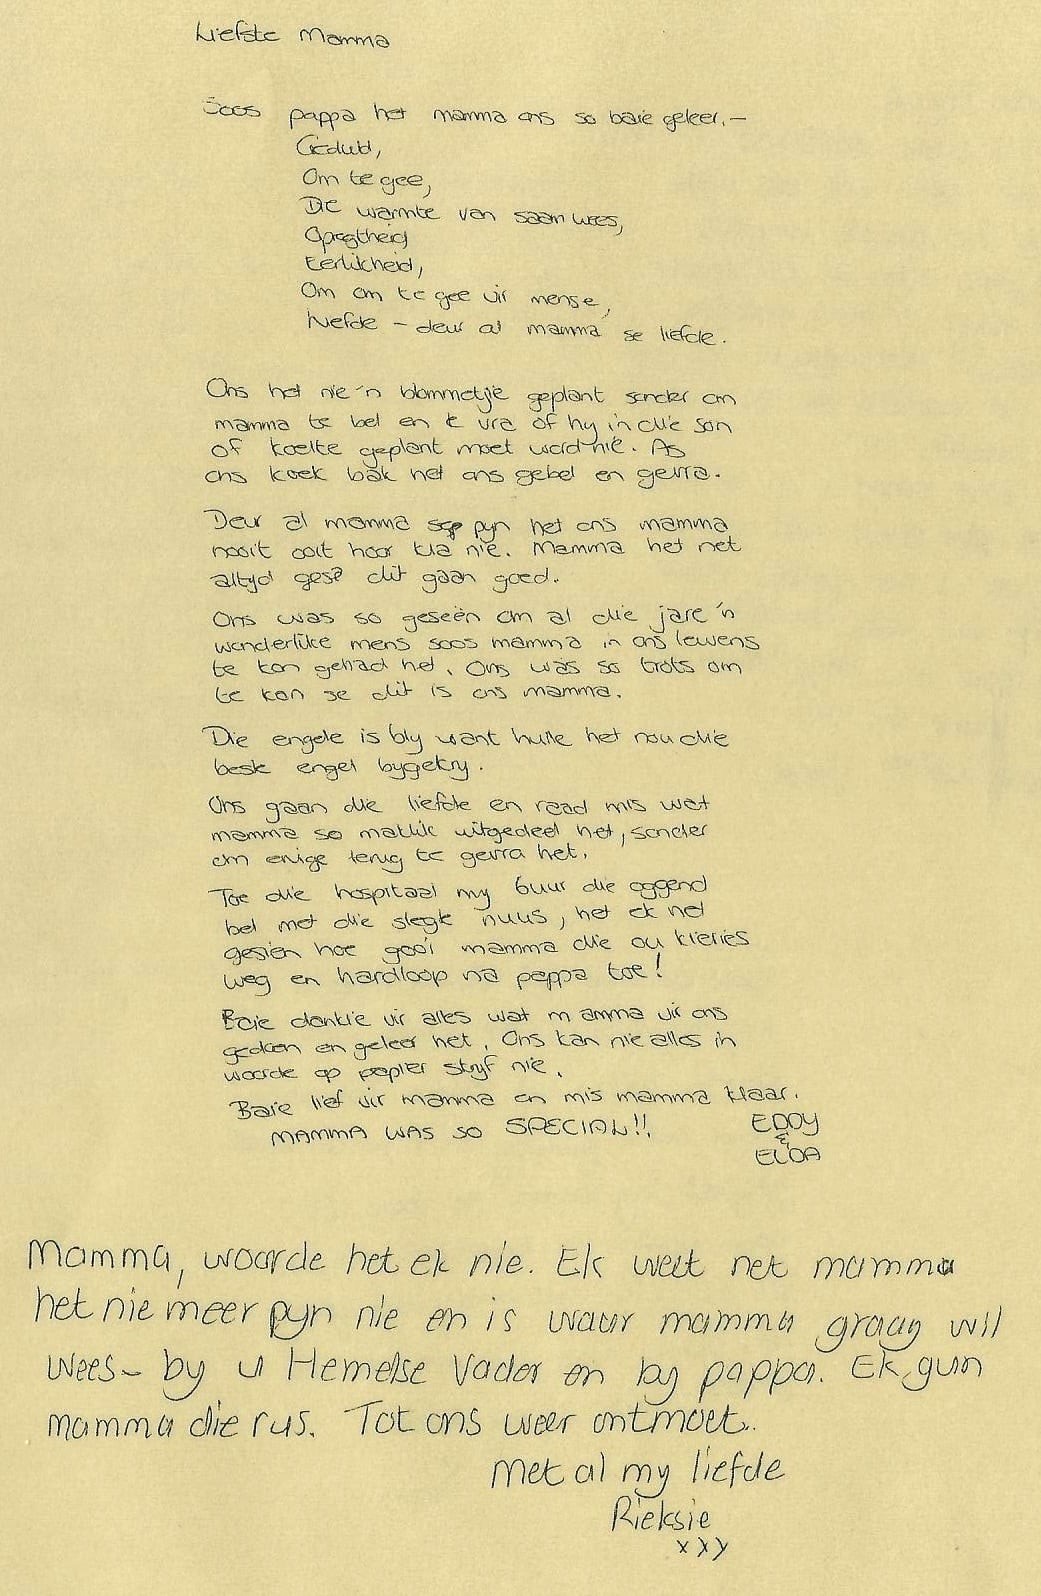 Liefste Mamma
Soos pappa het mamma ons so baie geleer, -
Geduld,
Om te gee,
Die warmte van saam wees,
Opregtheid
Eerlikheid,
Om om te gee vir mense,
Liefde - deur al mamma se liefde.
Ons het nie 'n blommetjie geplant sonder om
mamma te bel en te vra of hy in die son
of koelte geplant moet word nie. As
ons koek bak het ons gebel en gevra.
Deur al mamma se pyn het ons mamma
nooit ooit hoor kla nie. Mamma het net
altyd gesê dit gaan goed.
Ons was so geseën om al die jare 'n
wonderlike mens soos mamma in ons lewens
te kon gehad het. Ons was so trots om
te kon se dit is ons mamma.
Die engele is bly want hulle het nou die
beste engel bygekry.
Ons gaan die liefde en raad mis wat
mamma so maklik uitgedeel het, sonder
om enige terug te gevra het.
Toe die hospitaal my 6uur die oggend
bel met die slegte nuus, het ek net
gesien hoe gooi mamma die ou kieries
weg en hardloop na pappa toe!
Baie dankie vir alles wat mamma vir ons
gedoen en geleer het. Ons kan nie alles in
woorde op papier skryf nie.
Baie lief vir mamma en mis mamma klaar.
MAMMA WAS SO SPECIAL!!
EDDY
&
ELDA
Mamma, woorde het ek nie. Ek weet net mamma
het nie meer pyn nie en is waar mamma graag wil
wees - by u Hemelse Vader en by pappa. Ek gun
mamma die rus. Tot ons weer ontmoet.
Met al my liefde
Rieksie
xxx